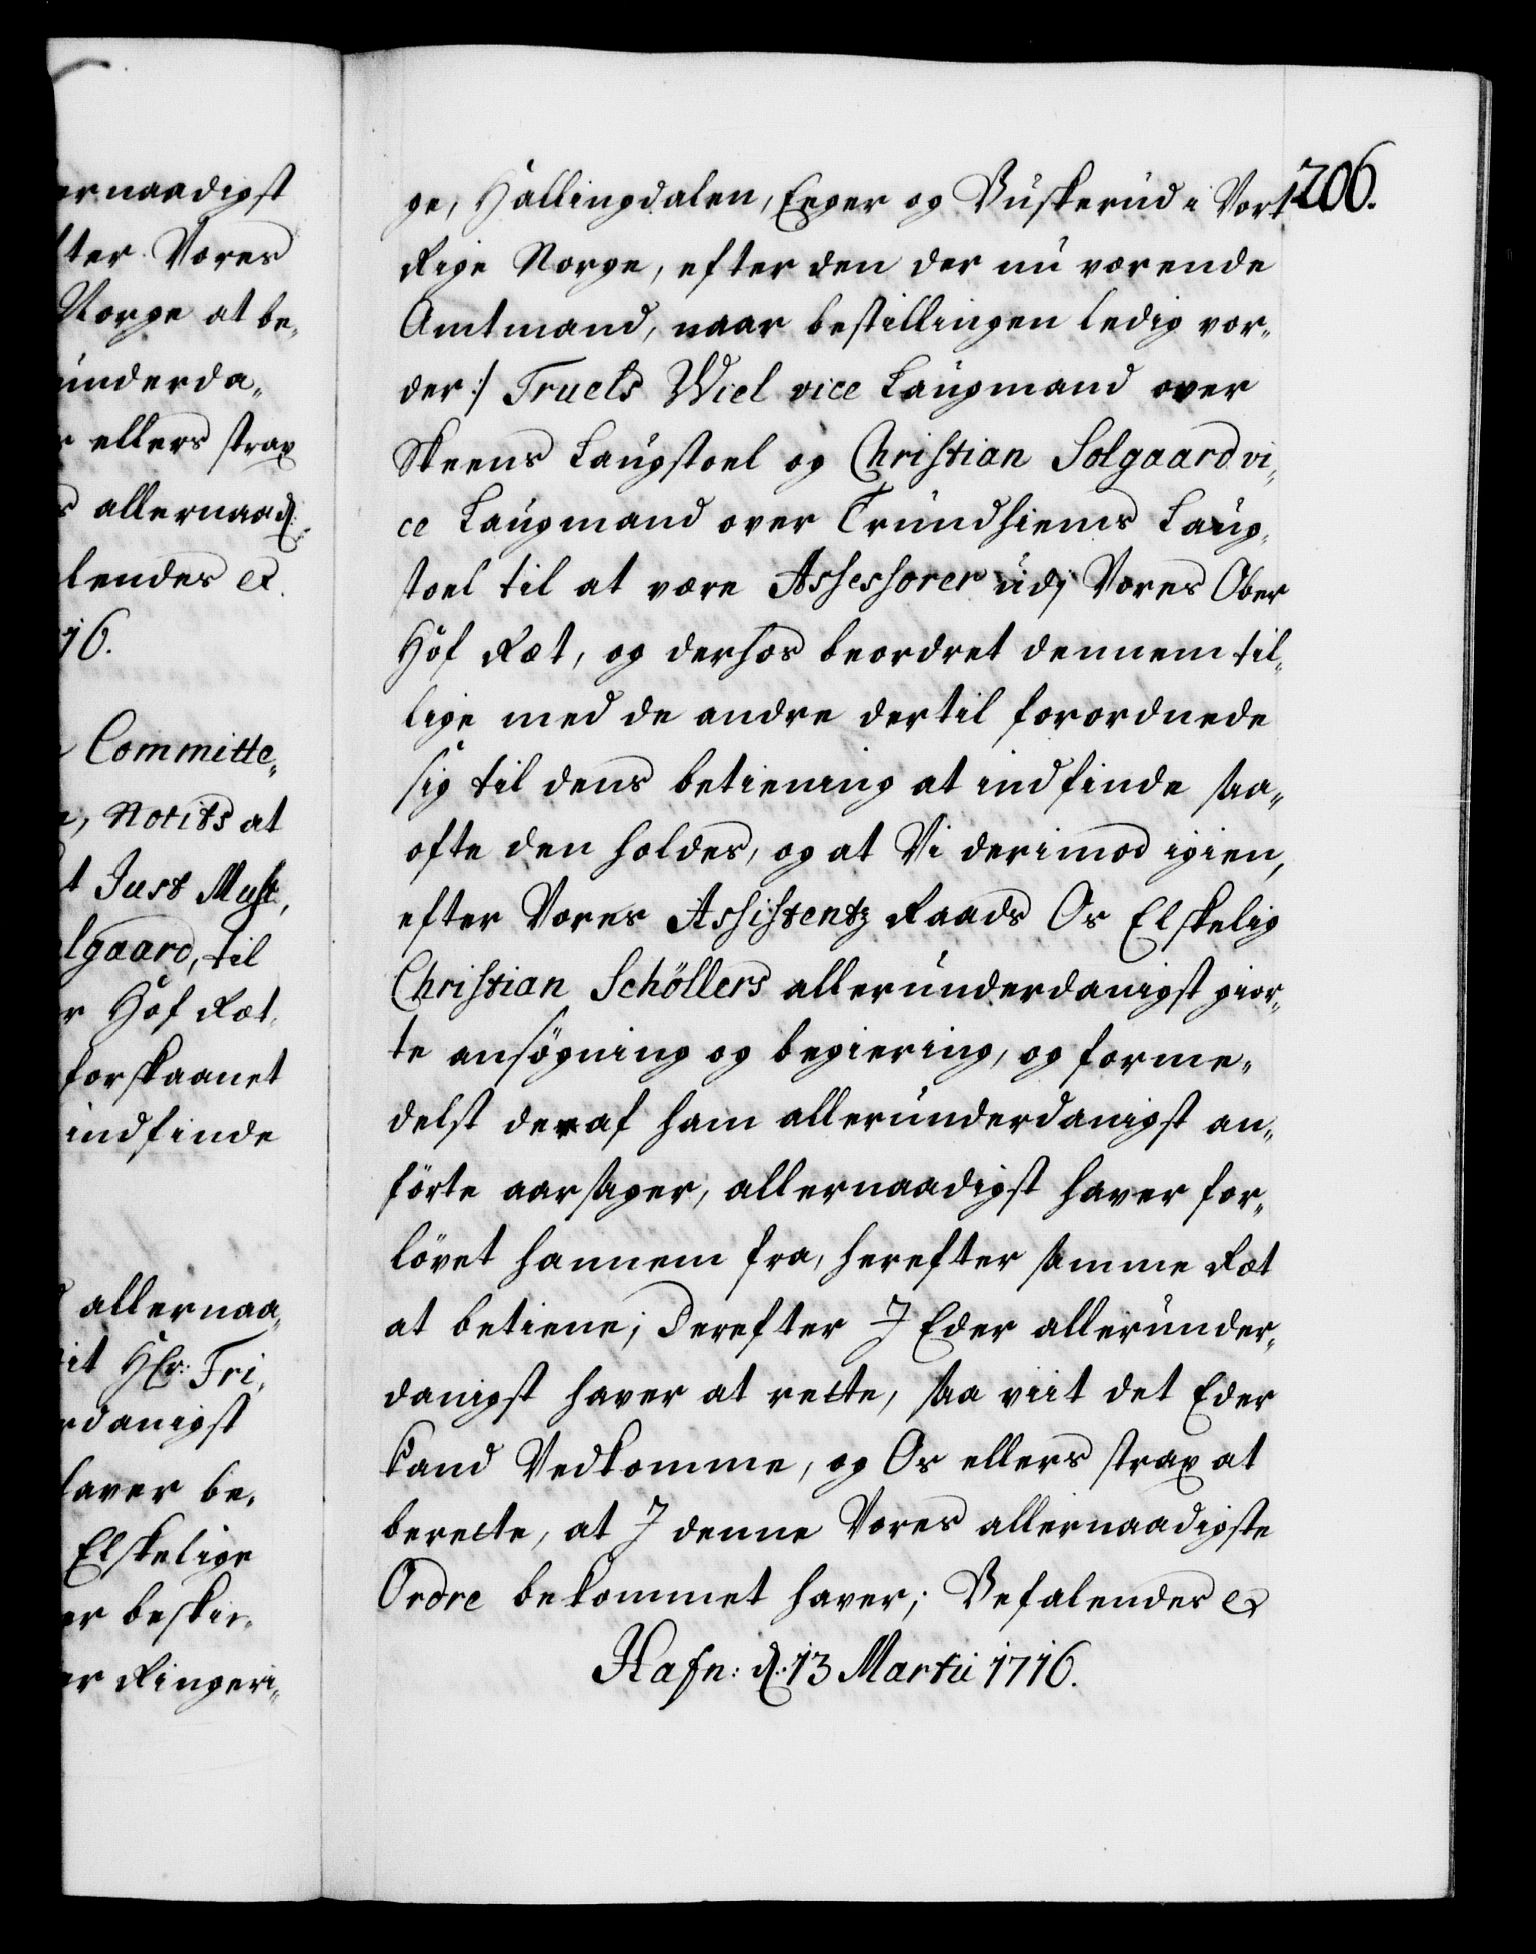 ernaadigst
fter Vores
Norge at be„
underda„
r ellers strax
s allernaad:
lendes &
16.
Committe„
Notits at
t Just Must,
lgaard, til
r Hof Ræt,
forskaanet
indfinde
allernaa„
it Hr: Fri„
rdanigst
haver be„
Elskelige
er beskir„
er Ringeri„
206.
ge, Hallingdalen, Eger og Buskerud i Vort
Rige Norge, efter den der nu værende
Amtmand, naar bestillingen ledig vor„
der :/ Truels Wiel vice Laugmand over
Skeens Laugstoel og Christian Solgaard vi„
ce Laugmand over Trundhiems Laug„
stoel til at være Assessorer udj Vores Ober
Hof Ræt, og derhos beordret dennem til„
lige med de andre dertil forordnede
sig til dens betiening at indfinde saa„
ofte den holdes, og at Vi derimod igien,
efter Vores Assistentz Raads Os Elskelig
Christian Schöllers allerunderdanigst gior„
te ansögning og begiering, og forme„
delst deraf ham allerunderdanigst an„
förte aarsager, allernaadigst haver for„
lövet hannem fra, herefter samme Ræt
at betiene; Derefter I Eder allerunder„
danigst haver at rette, saa viit det Eder
kand Vedkomme, og Os ellers strax at
berette, at I denne Vores allernaadigste
Ordre bekommet haver; Befalendes &
Hafn: d: 13 Martii 1716.